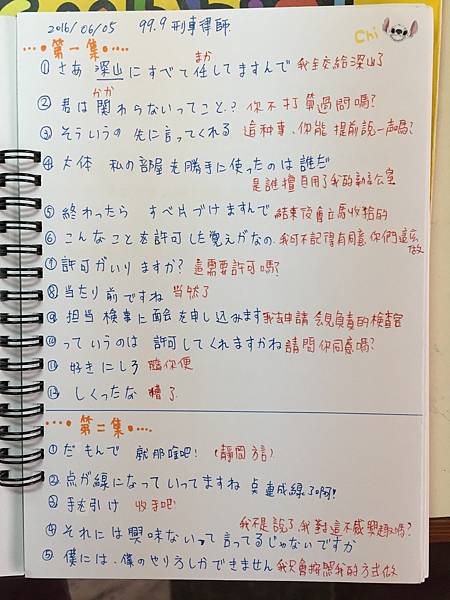 2016/06/05 99.9 刑事律師
Chi
第一集
まか
① さあ 深山にすべて任してますんで 我全交給深山了
かか
② 君は関わらないってこと? 你不打算過問嗎?
③ そういうの 先に言ってくれる 這种事、你能提前說一声嗎?
④ 大体 私の部屋も勝手に使ったのは誰だ
是誰擅自用了我的辦公室
⑤ 終わったら すべ片づけますんで 結束後會立馬收拾的
⑥ こんなことを許可した覚えがなの、我可不記得有同意你們這麼做
⑦ 許可がいりますか? 這需要許可嗎?
⑧ 当たり前ですね 当然了
⑨ 担当検事に面会を申し込みます 我去申請 会見負責的檢查官
⑩ っていうのは 許可してくれますかね 請問你同意嗎?
⑪ 好きにしろ 隨你便
⑫ しくったな 糟了
第二集
① だもんで 就那啥吧! (靜岡方言)
② 点が線になっていってますね 点連成線了啊!
③ 手を引け 收手吧!
我不是說了、我對這不感興趣嗎?
④ それには興味ないって言ってるじゃないですか
⑤ 僕には、僕のやり方しかできません 我只會按照我的方式做